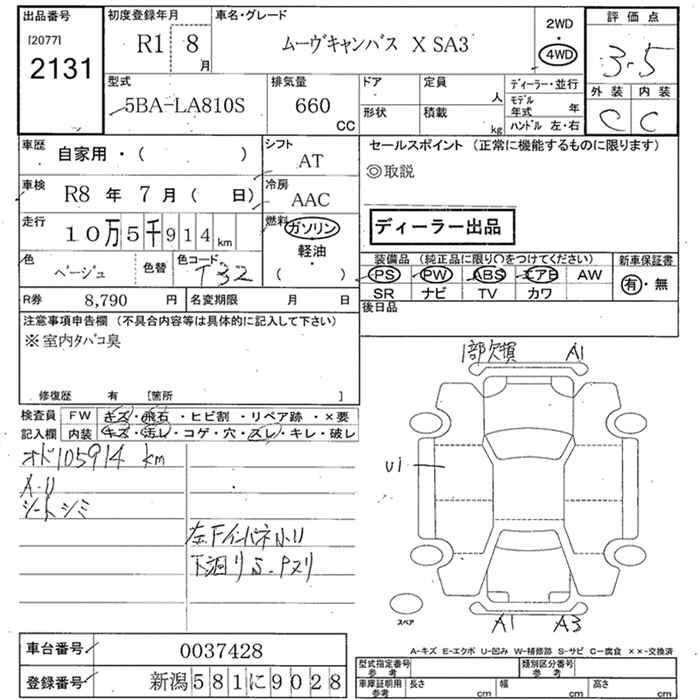 出品番号
[2077]
2131
初度登録年月
R1 8
月
車名・グレード
ムーヴキャンバス X SA3
2WD
・
4WD
評価点
3.5
外装 内装
C C
型式
5BA-LA810S
排気量
660
CC
ドア
形状
定員
人
積載
kg
ディーラー・並行
モデル年式 年
ハンドル 左・右
車歴
自家用・( )
車検
R8 年 7 月 ( 日)
走行
10万5千914 km
色
ベージュ
色替
色コード
T32
R券 8,790 円
名変期限 月 日
シフト
AT
冷房
AAC
燃料
ガソリン
軽油
・
( )
セールスポイント (正常に機能するものに限ります)
◎取説
ディーラー出品
装備品 (純正品に限り○をつけてください)
PS PW ABS エアB AW
SR ナビ TV カワ
新車保証書
有・無
後日品
注意事項申告欄 (不具合内容等は具体的に記入して下さい)
※室内タバコ臭
修復歴 有 [箇所 ]
検査員記入欄
FW キズ・飛石・ヒビ割・リペア跡・×要
内装 キズ・汚レ・コゲ・穴・スレ・キレ・破レ
オド105914 km
A・U
シートシミ
左Fインパネ小U
下廻りS.Pヌリ
1部欠損 A1
U1
スペア
A1 A3
A-キズ E-エクボ U-凹み W-補修跡 S-サビ C-腐食 ××-交換済
車台番号 0037428
登録番号 新潟581に9028
型式指定番号
参考
類別区分番号
参考
車庫証明用
参考
長さ cm
幅 cm
高さ cm